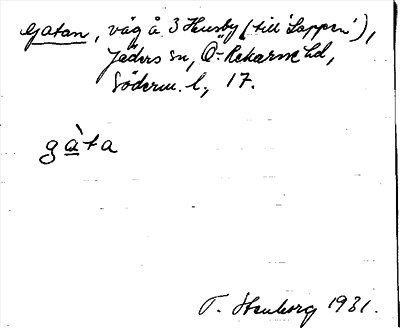 Gatan, väg å 3 Husby (till 'Loppen'),
Jäders sn, Ö-Rekarne hd,
Söderm. l., 17.
gà̱ta
T. Stenborg 1931.